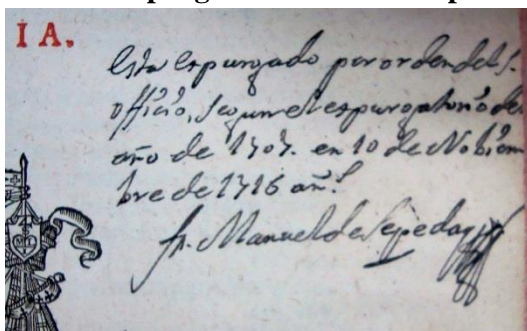 I A.
Esta expurgado por orden del S.
Officio, segun el expurgatorio de
año de 1707. en 10 de Nobiem
bre de 1716 añ.s
fr. Manuel de Sepeda